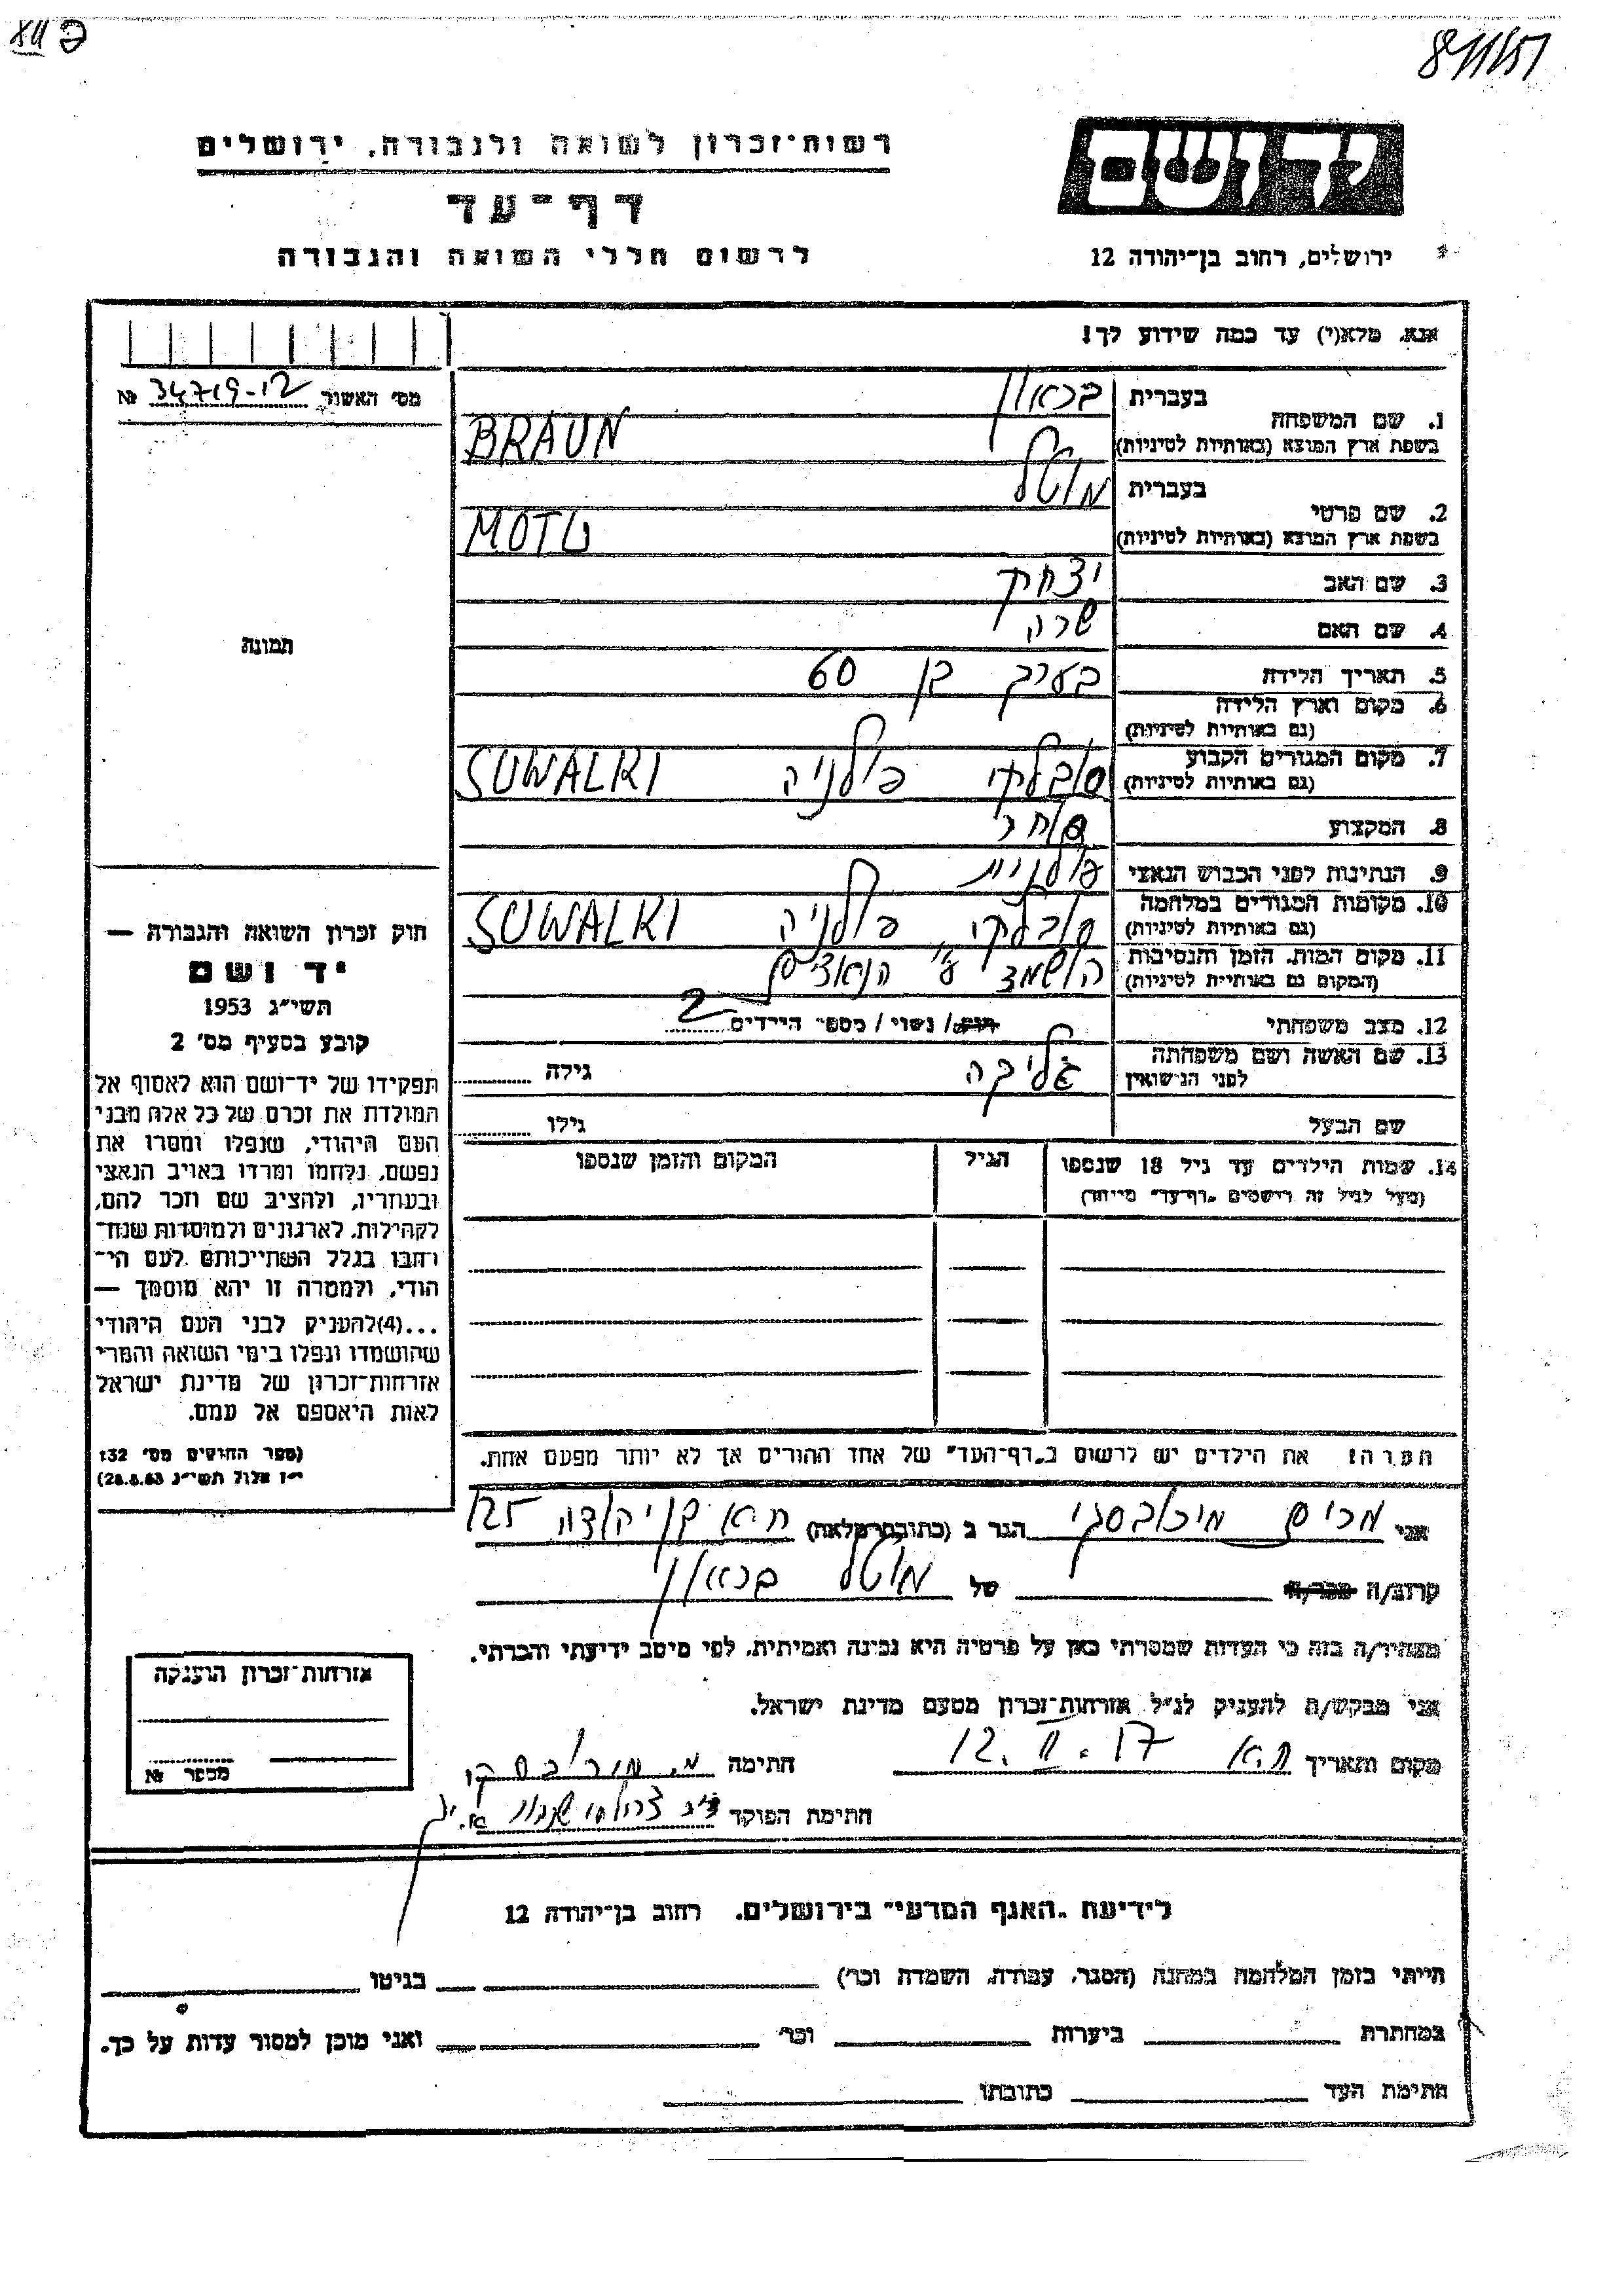 רשות־זכרון לשואה ולגבורה, ירושלים
דף־עד
לרשום חללי השואה והגבורה
יד ושם
ירושלים, רחוב בן־יהודה 12
אנא, מלא(י) עד כמה שידוע לך!
מס' האשור 34719-12 №
1. שם המשפחה בעברית בראון
בשפת ארץ המוצא (באותיות לטיניות) BRAUN
2. שם פרטי בעברית מוטל
בשפת ארץ המוצא (באותיות לטיניות)
3. שם האב יצחק
4. שם האם שרה
5. תאריך הלידה בערך בן 60
6. מקום וארץ הלידה
(גם באותיות לטיניות)
7. מקום המגורים הקבוע סובלקי פולניה SUWALKI
(גם באותיות לטיניות)
8. המקצוע סוחר
9. הנתינות לפני הכבוש הנאצי פולנית
10. מקומות המגורים במלחמה סובלקי פולניה SUWALKI
(גם באותיות לטיניות)
11. מקום המות, הזמן והנסיבות הושמד ע"י הנאצים
(המקום גם באותיות לטיניות)
12. מצב משפחתי רווק/ נשוי/ מספר הילדים 2
13. שם האשה ושם משפחתה
לפני הנישואין גליקה גילה
שם הבעל גילו
14. שמות הילדים עד גיל 18 שנספו הגיל המקום והזמן שנספו
(מעל לגיל זה רושמים "דף־עד" מיוחד)
תמונה
חוק זכרון השואה והגבורה —
יד ושם
תשי"ג 1953
קובע בסעיף מס' 2
תפקידו של יד־ושם הוא לאסוף אל
המולדת את זכרם של כל אלה מבני
העם היהודי, שנפלו ומסרו את
נפשם, נלחמו ומרדו באויב הנאצי
ובעוזריו, ולהציב שם וזכר להם,
לקהילות, לארגונים ולמוסדות שנח־
רבו בגלל השתייכותם לעם הי־
הודי, ולמטרה זו יהא מוסמך —
...(4)להעניק לבני העם היהודי
שהושמדו ונפלו בימי השואה והמרי
אזרחות־זכרון של מדינת ישראל
לאות היאספם אל עמם.
(ספר החוקים מס' 132
י"ז אלול תשי"ג 28.8.53)
הערה: את הילדים יש לרשום ב"דף־העד" של אחד ההורים אך לא יותר מפעם אחת.
אני מרים הגר ב (כתובת מלאה) ת"א בן יהודה 125
קרוב/ה מכר/ה של מוטל בראון
מצהיר/ה בזה כי העדות שמסרתי כאן על פרטיה היא נכונה ואמיתית, לפי מיטב ידיעתי והכרתי.
אני מבקש/ת להעניק לנ"ל אזרחות־זכרון מטעם מדינת ישראל.
מקום ותאריך ת"א 12. II. 17 חתימה מ.
חתימת הפוקד
אזרחות־זכרון הוענקה
מספר №
לידיעת "האגף המדעי" בירושלים, רחוב בן־יהודה 12
הייתי בזמן המלחמה במחנה (הסגר, עבודה, השמדה וכו') בגיטו
במחתרת ביערות וכו' ואני מוכן למסור עדות על כך.
חתימת העד כתובתו